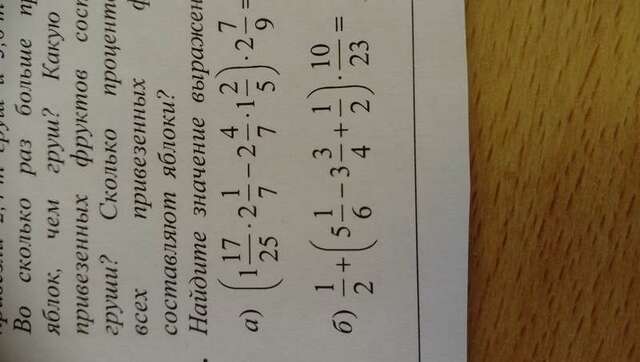 2,4 т груш и 3,6 т
Во сколько раз больше пр
яблок, чем груш? Какую
привезенных фруктов сос
груши? Сколько процент
всех привезенных ф
составляют яблоки?
. Найдите значение выражен
а) (1 17/25 · 2 1/7 − 2 4/7 · 1 2/5) · 2 7/9 =
б) 1/2 + (5 1/6 − 3 3/4 + 1/2) · 10/23 =